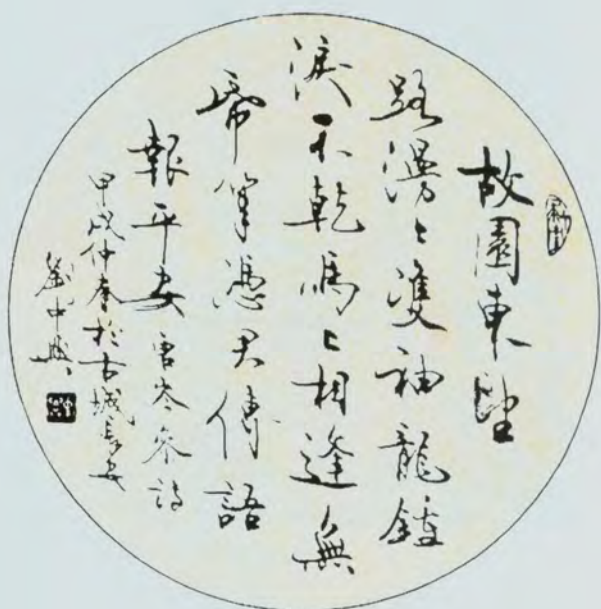 故園東望
路漫〻雙袖龍鍾
淚不乾馬上相逢無
帋筆憑君傳語
報平安 唐岑參詩
甲戌仲春於古城長安
劉中興